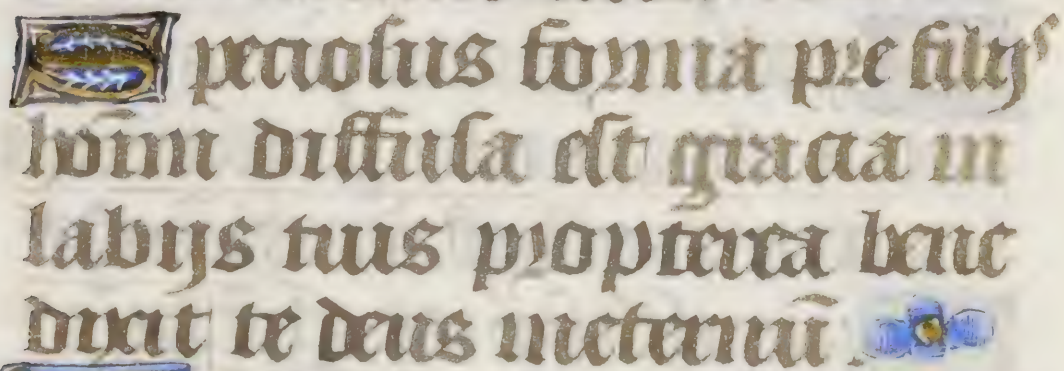 Speciosus forma pre filijs
hoīm diffusa est gracia in
labijs tuis propterea bene
dixit te deus ineternuꝫ̄.